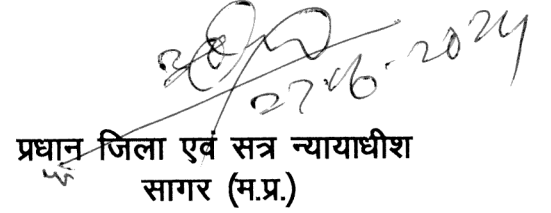 27.06.2024
प्रधान जिला एवं सत्र न्यायाधीश
सागर (म.प्र.)